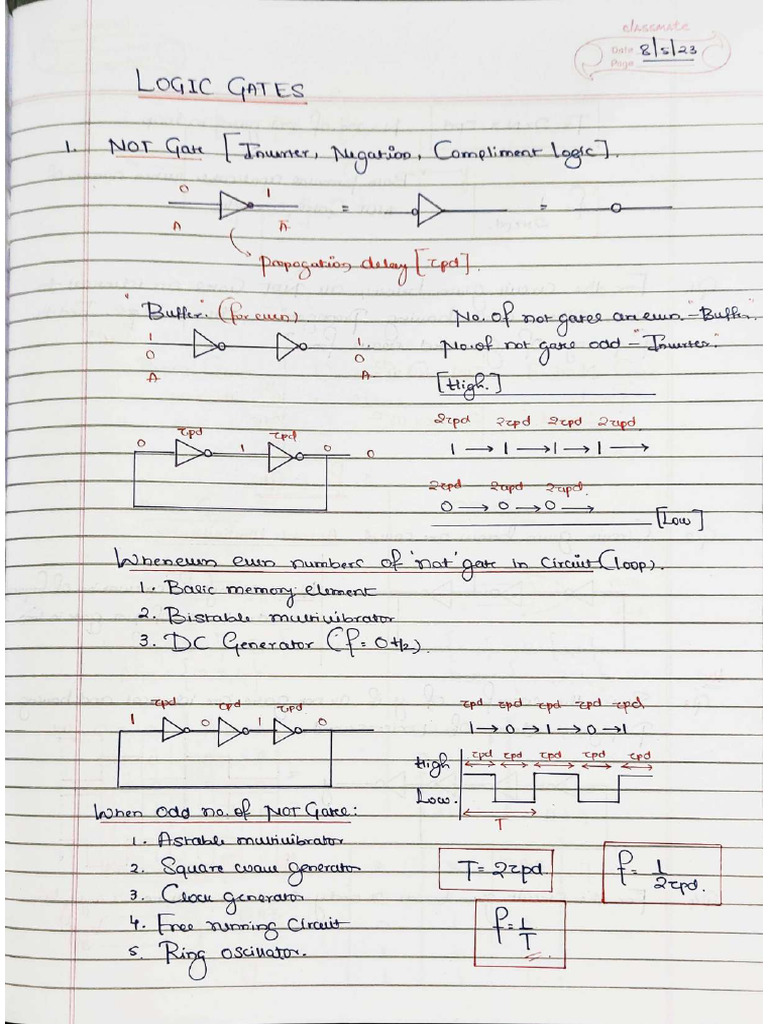 classmate
Date 8/5/23
Page
LOGIC GATES
1. NOT Gate [Inverter, Negation, Compliment Logic].
0 1
A Ā
= =
Propogation delay [τpd].
"Buffer" (for even)
No. of not gates are even - "Buffer"
1 1
0 0
A A
No. of not gate odd - "Inverter"
[High.]
τpd τpd
0 1 0 0
2τpd 2τpd 2τpd 2τpd
1 → 1 → 1 → 1 →
2τpd 2τpd 2τpd.
0 → 0 → 0 →
[Low]
Whenever even numbers of 'not' gate in circuit (loop).
1. Basic memory element
2. Bistable multivibrator
3. DC Generator (f = 0 Hz).
τpd τpd τpd
1 0 1 0
τpd τpd τpd τpd τpd
1 → 0 → 1 → 0 → 1
High τpd τpd τpd τpd τpd
Low.
T
When odd no. of NOT Gate:
1. Astable multivibrator
2. Square wave generator
3. Clock generator
4. Free running circuit
5. Ring oscillator.
T = 2τpd.
f = 1/2τpd.
f = 1/T